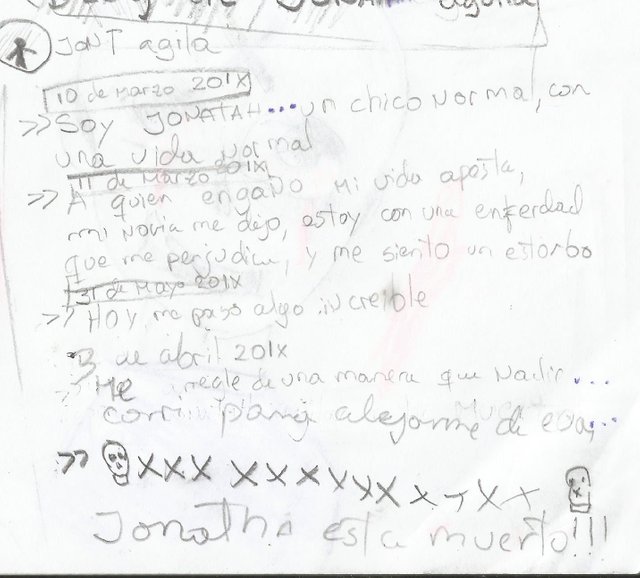 JONT agila
10 de Marzo 201X
>> Soy JONATAH... un chico Normal, con
una vida Normal
11 de Marzo 201X
>> A quien engaño Mi vida apesta,
mi Novia me dejo, estoy con una enferdad
que me perjudica, y me siento un estorbo
31 de Mayo 201X
>> HOY me paso algo increible
3 de abril 201X
>> Me de una manera que Nadie...
corri para alejarme de eya...
>> XXX XXXXXXXXXX
Jonatha esta muerto!!!